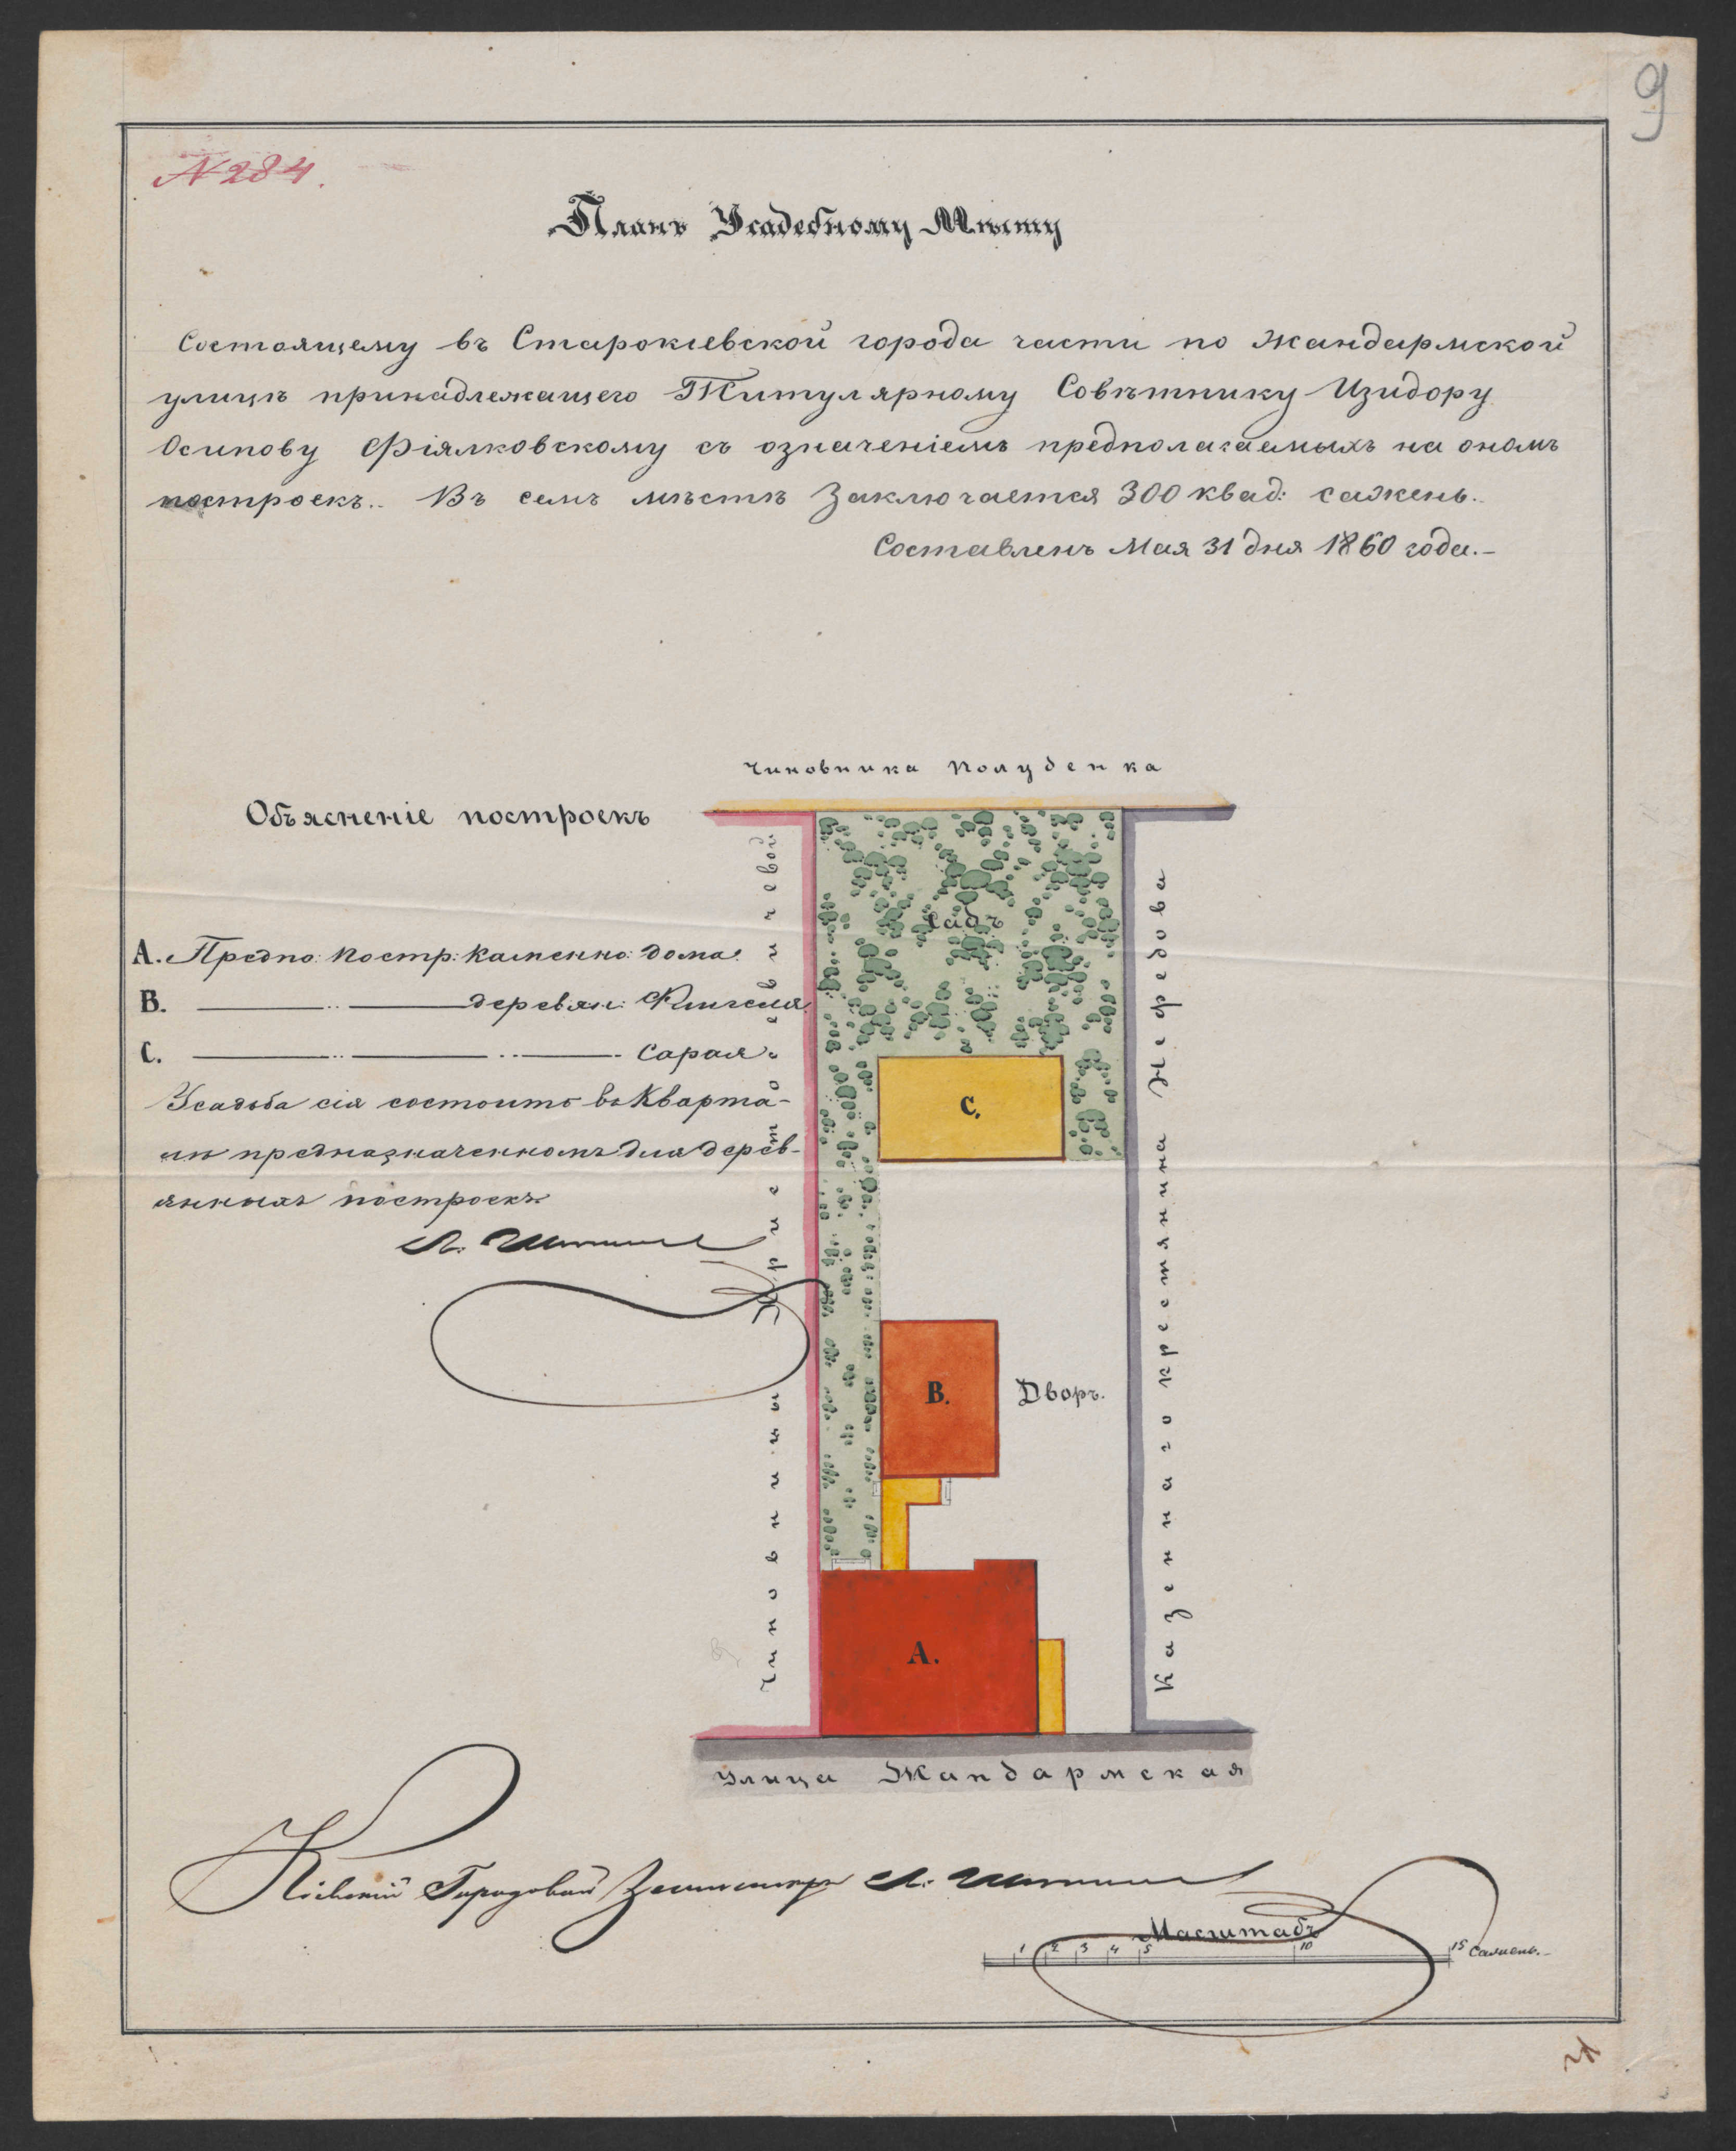 9
N 284.
Планъ Усадебному Мѣсту
Состоящему въ Старокіевской города части по Жандармской
улицѣ принадлежащего Титулярному Совѣтнику Изидору
Осипову Фіялковскому съ означеніемъ предполагаемыхъ на ономъ
построекъ. Въ семъ мѣстѣ Заключается 300 квад: сажень.
Составленъ Мая 31 дня 1860 года.
Чиновника Полуденка
Объясненіе построекъ
A. Предпо: постр: Каменно: дома
B. деревян: Флигеля
C. Сарая
Усадьба сія состоитъ въ Кварта-
лѣ предназначенномъ для дерев-
янныхъ построекъ
Чиновницы
Казеннаго крестянина Нефедова
Садъ
C.
B.
Дворъ.
A.
Улица Жандармская
Кіевскій Городовой Землемѣръ
Масштабъ
1 2 3 4 5 10 15 Сажень.